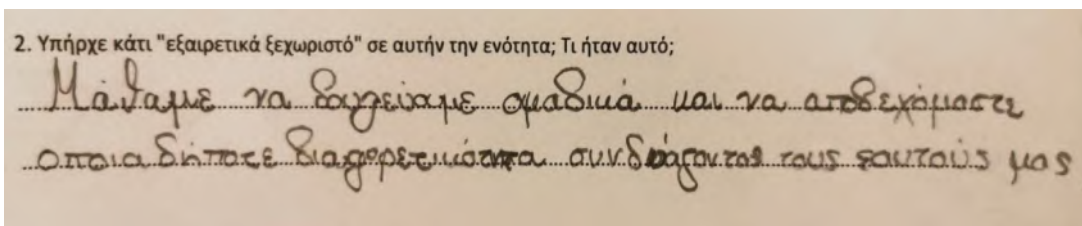 2. Υπήρχε κάτι "εξαιρετικά ξεχωριστό" σε αυτήν την ενότητα; Τι ήταν αυτό;
Μάθαμε να δουλεύουμε ομαδικά και να αποδεχόμαστε
οποιαδήποτε διαφορετικότητα συνδυάζοντας τους εαυτούς μας